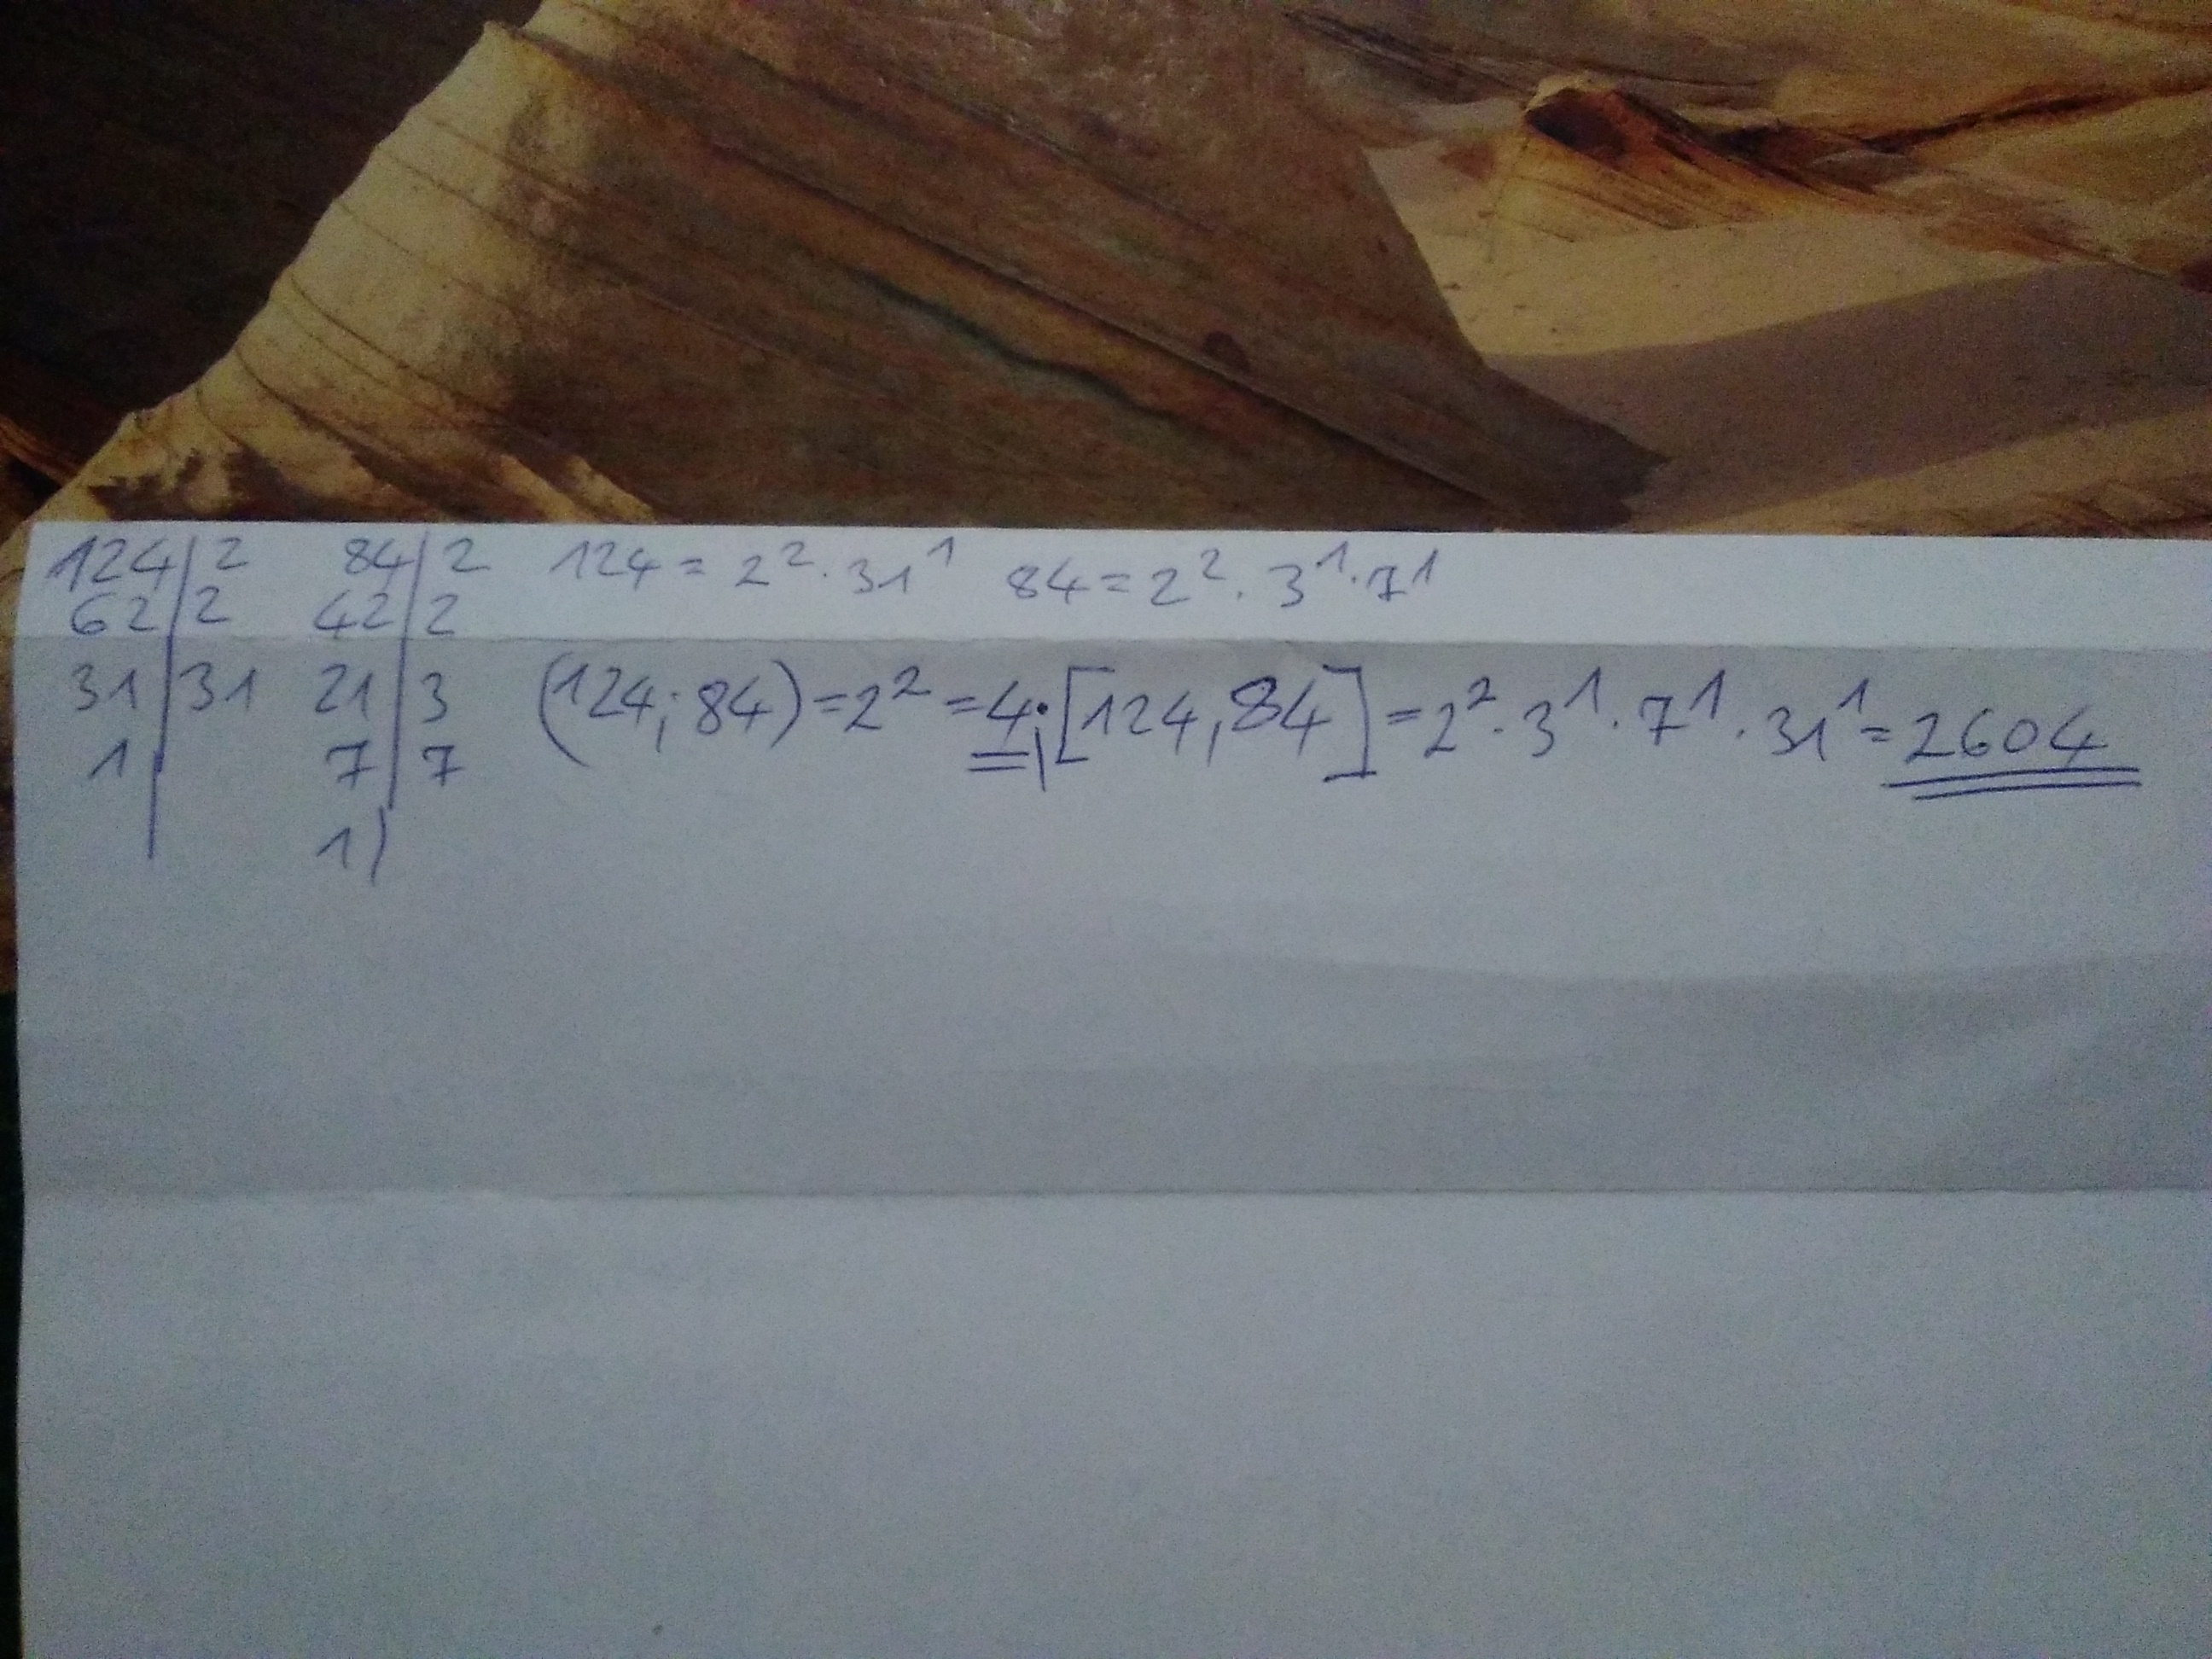 124|2 84|2 124=2²·31¹ 84=2²·3¹·7¹
62|2 42|2
31|31 21|3 (124;84)=2²=4; [124,84]=2²·3¹·7¹·31¹=2604
1| 7|7
1|